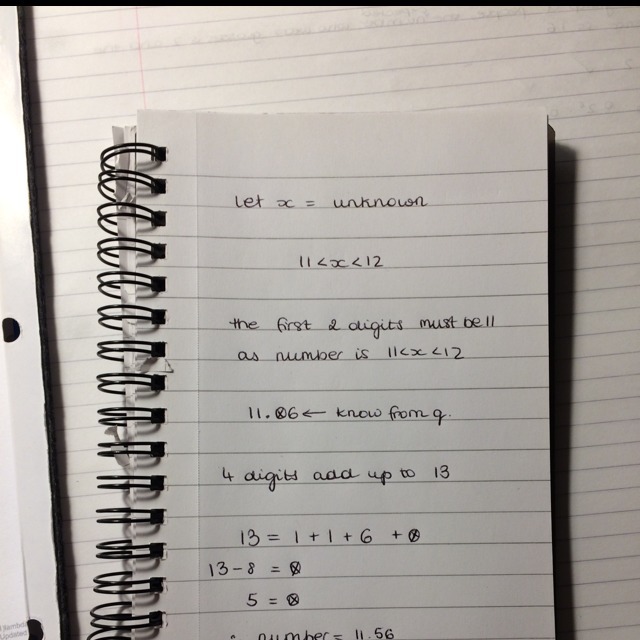 let x = unknown
11<x<12
the first 2 digits must be 11
as number is 11<x<12
11.⊗6 ← know from q.
4 digits add up to 13
13 = 1 + 1 + 6 + ⊗
13-8 = ⊗
5 = ⊗
∴ number = 11.56
lambda
Updated